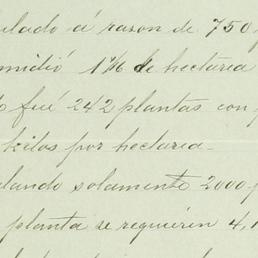 ulado á razon de 750
midió 1 % de hectaria
fué 242 plantas con
kilos por hectaria-
lando solamente 2000
planta se requieren 4,